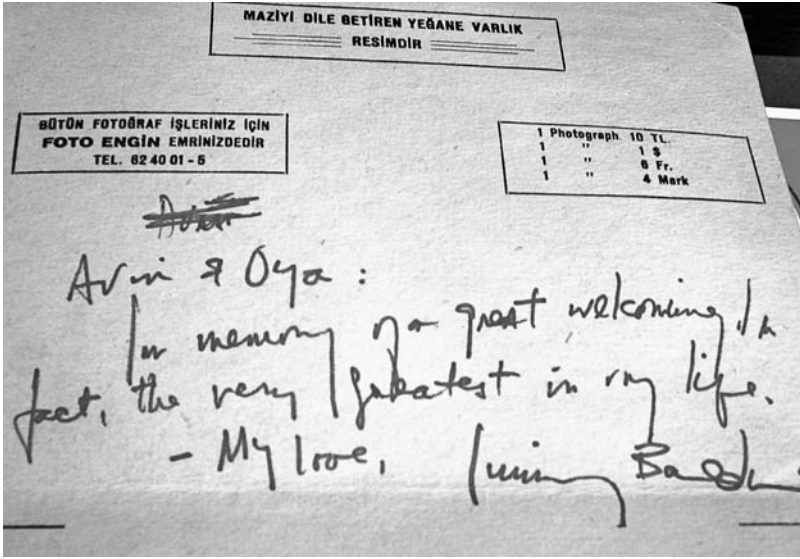 MAZİYİ DİLE GETİREN YEĞANE VARLIK
RESİMDİR
BÜTÜN FOTOĞRAF İŞLERİNİZ İÇİN
FOTO ENGİN EMRİNİZDEDİR
TEL. 62 40 01 - 5
1 Photograph 10 TL.
1 " 1 $
1 " 6 Fr.
1 " 4 Mark
Avni & Oya :
In memory of a great welcoming. In
fact, the very greatest in my life.
- My love,
Jimmy Baldwin